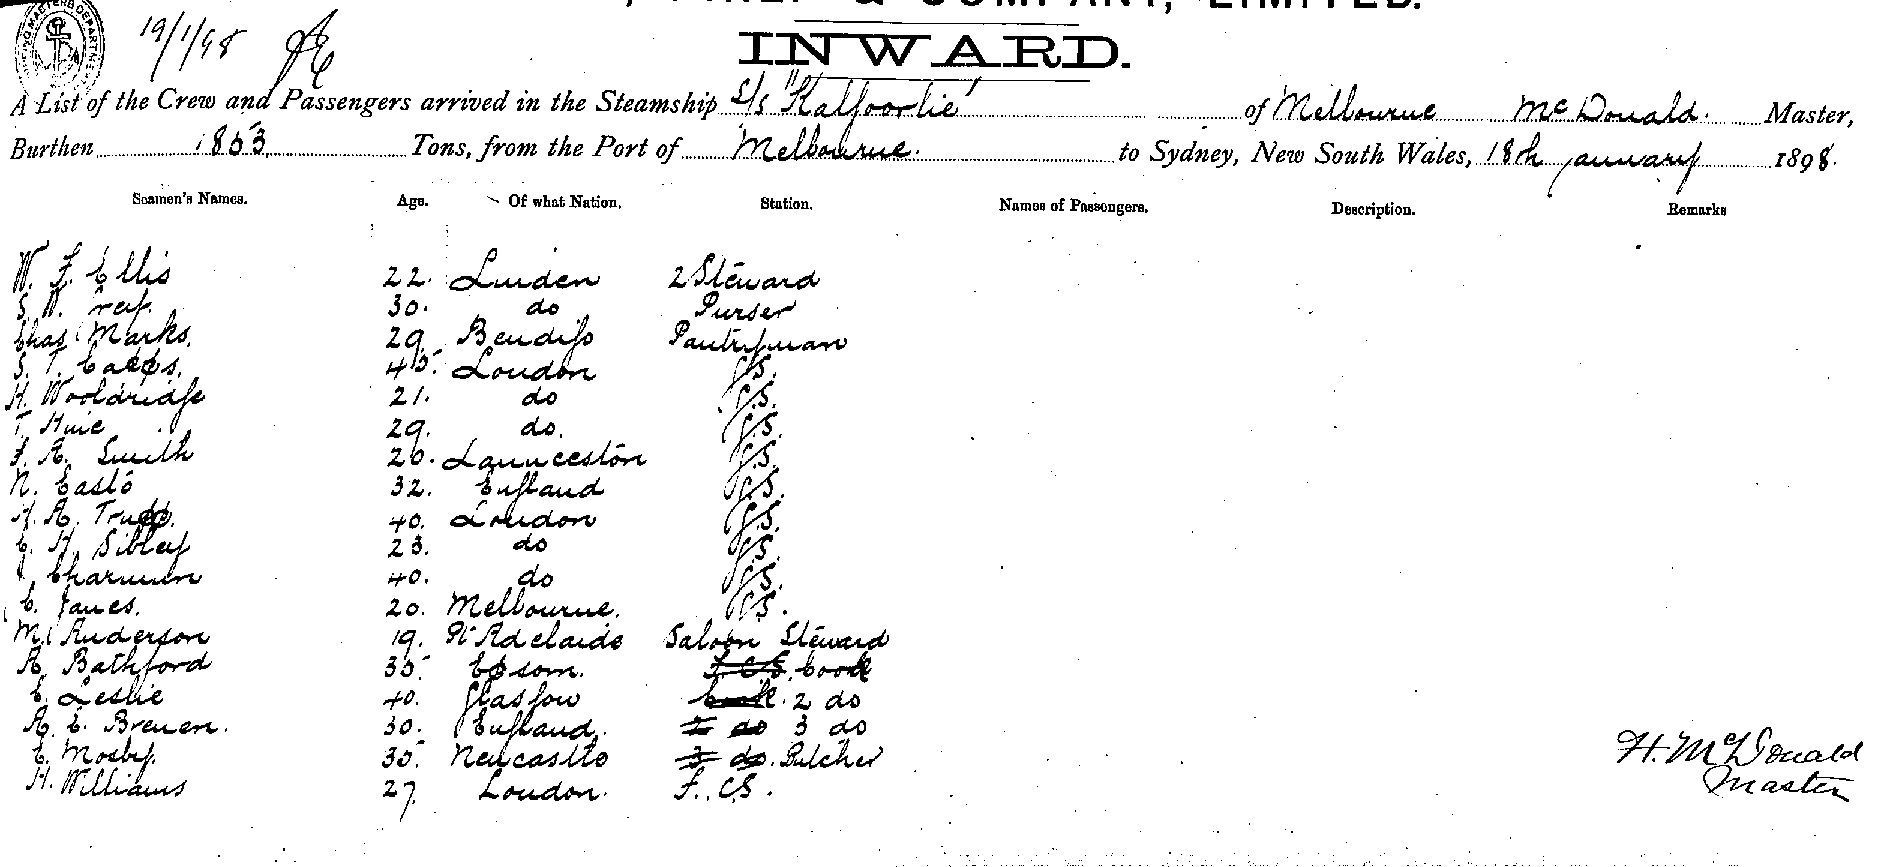 & COMPANY, LIMITED.
19/1/98
INWARD.
A List of the Crew and Passengers arrived in the Steamship S/S "Kalgoorlie" of Melbourne McDonald. Master,
Burthen 1853 Tons, from the Port of Melbourne. to Sydney, New South Wales, 18th January 1898.
Seamen's Names. Age. Of what Nation. Station. Names of Passengers. Description. Remarks
W. F. Ellis 22. Linden 2 Steward
S. W. 30. do Purser
Chas Marks. 29 Bendigo Pantryman
S. T. Capps. 45 London G.S.
H. Wooldridge 21. do G.S.
T. Huie 29. do. G.S.
F. A. Smith 26. Launceston G.S.
N. Easto 32. England G.S.
H. A. Trupp. 40. London G.S.
C. H. Sibley 23. do G.S.
Charmen 40. do G.S.
C. Janes. 20. Melbourne. G.S.
M. Anderson 19. Pt Adelaide Saloon Steward
A. Bathford 35. Epsom. F.C.S. Cook
C. Leslie 40. Glasgow Cook. 2 do
A. E. Breuen. 30. England. 2 do 3 do
C. Mosby. 35. Newcastle 3 do. Butcher
H. Williams 27. London. F.C.S.
H. McDonald
Master